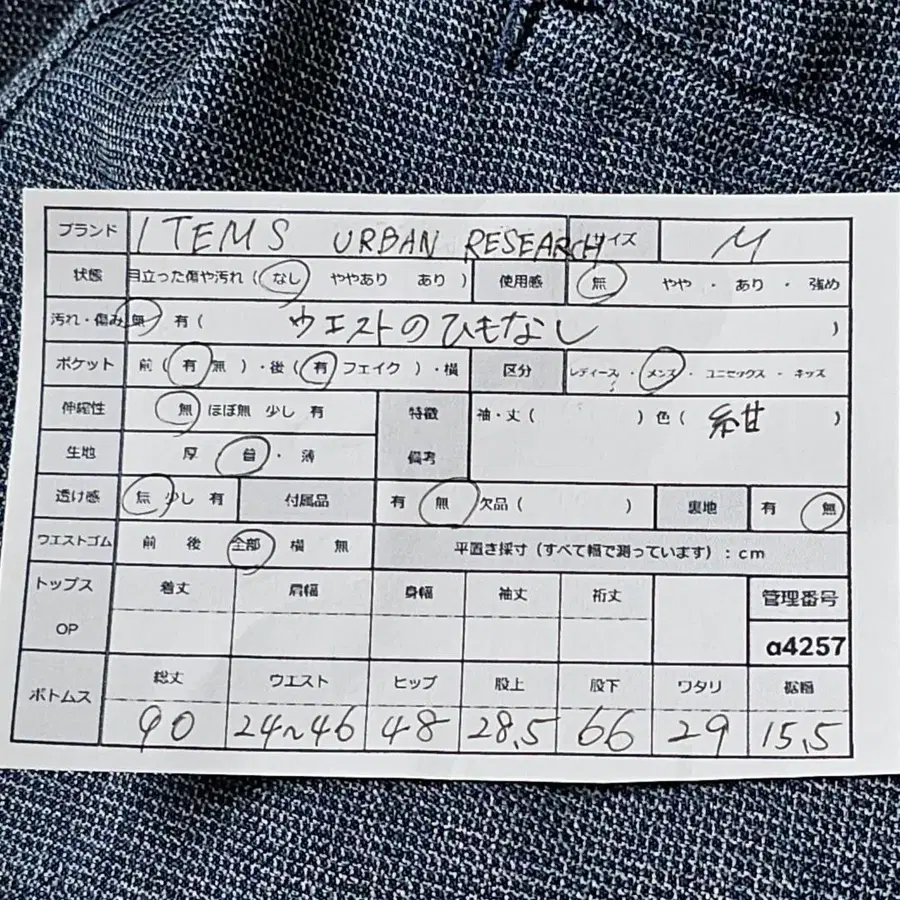 ブランド ITEMS URBAN RESEARCH イズ M
状態 目立った傷や汚れ ( なし ややあり あり ) 使用感 無 やや ・ あり ・ 強め
汚れ・傷み 無 有 ( ウエストのひもなし )
ポケット 前 ( 有 無 ) ・後 ( 有 フェイク ) ・横 区分 レディース ・ メンズ ・ ユニセックス ・ キッズ
伸縮性 無 ほぼ無 少し 有 特徴 袖・丈 ( ) 色 ( 紺 )
生地 厚 普 ・ 薄 備考
透け感 無 少し 有 付属品 有 無 欠品 ( ) 裏地 有 無
ウエストゴム 前 後 全部 横 無 平置き採寸 (すべて幅で測っています) : cm
トップス 着丈 肩幅 身幅 袖丈 裄丈 管理番号
OP a4257
ボトムス 総丈 ウエスト ヒップ 股上 股下 ワタリ 裾幅
90 24~46 48 28.5 66 29 15.5